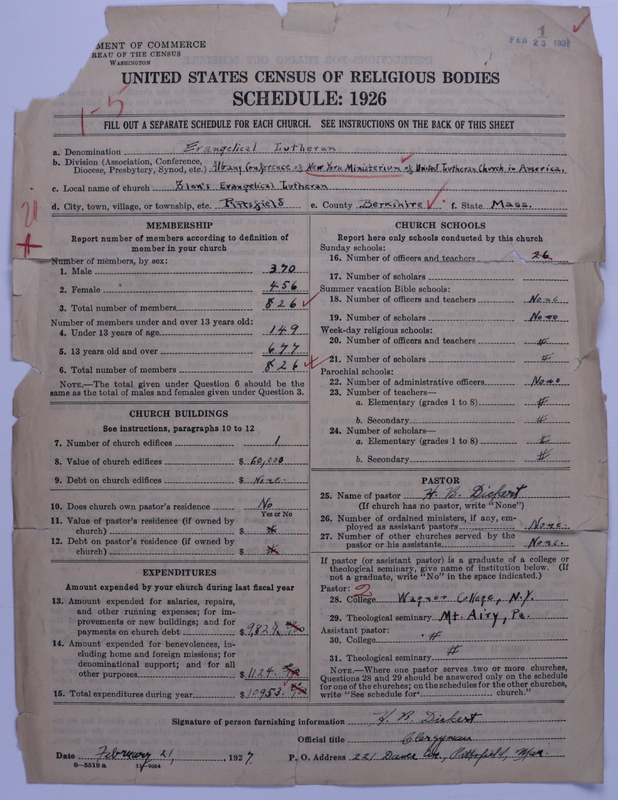 1
FEB 23 192
MENT OF COMMERCE
REAU OF THE CENSUS
WASHINGTON
UNITED STATES CENSUS OF RELIGIOUS BODIES
SCHEDULE: 1926
1-5
FILL OUT A SEPARATE SCHEDULE FOR EACH CHURCH. SEE INSTRUCTIONS ON THE BACK OF THIS SHEET
a. Denomination Evangelical Lutheran
b. Division (Association, Conference, Diocese, Presbytery, Synod, etc.) Albany Conference of New York Ministerium of United Lutheran Church in America.
c. Local name of church Zion's Evangelical Lutheran
d. City, town, village, or township, etc. Pittsfield e. County Berkshire f. State Mass.
21
MEMBERSHIP
Report number of members according to definition of
member in your church
Number of members, by sex:
1. Male 370
2. Female 456
3. Total number of members 826
Number of members under and over 13 years old:
4. Under 13 years of age 149
5. 13 years old and over 677
6. Total number of members 826
NOTE.—The total given under Question 6 should be
same as the total of males and females given under Question 3.
CHURCH BUILDINGS
See instructions, paragraphs 10 to 12
7. Number of church edifices 1
8. Value of church edifices $ 60,000
9. Debt on church edifices $ None.
10. Does church own pastor's residence No
Yes or No
11. Value of pastor's residence (if owned by
church) $
12. Debt on pastor's residence (if owned by
church) $
EXPENDITURES
Amount expended by your church during last fiscal year
13. Amount expended for salaries, repairs,
and other running expenses; for im-
provements or new buildings; and for
payments on church debt $ 9829
14. Amount expended for benevolences, in-
cluding home and foreign missions; for
denominational support; and for all
other purposes $ 1124
15. Total expenditures during year $ 10953
CHURCH SCHOOLS
Report here only schools conducted by this church
Sunday schools:
16. Number of officers and teachers 26
17. Number of scholars
Summer vacation Bible schools:
18. Number of officers and teachers None
19. Number of scholars None
Week-day religious schools:
20. Number of officers and teachers #
21. Number of scholars #
Parochial schools:
22. Number of administrative officers None
23. Number of teachers—
a. Elementary (grades 1 to 8) #
b. Secondary #
24. Number of scholars—
a. Elementary (grades 1 to 8) #
b. Secondary #
PASTOR
25. Name of pastor H. B. Dickert
(If church has no pastor, write "None")
26. Number of ordained ministers, if any, em-
ployed as assistant pastors None.
27. Number of other churches served by the
pastor or his assistants None.
If pastor (or assistant pastor) is a graduate of a college or
theological seminary, give name of institution below. (If
not a graduate, write "No" in the space indicated.)
Pastor: 2
28. College Wagner College, N.Y.
29. Theological seminary Mt. Airy, Pa.
Assistant pastor:
30. College #
31. Theological seminary #
NOTE.—Where one pastor serves two or more churches,
Questions 28 and 29 should be answered only on the schedule
for one of the churches; on the schedules for the other churches,
write "See schedule for church."
Signature of person furnishing information H. B. Dickert
Official title Clergyman
Date February 21, 1927. P. O. Address 221 Dawes Ave, Pittsfield, Mass.
8—5518 a 11—9024